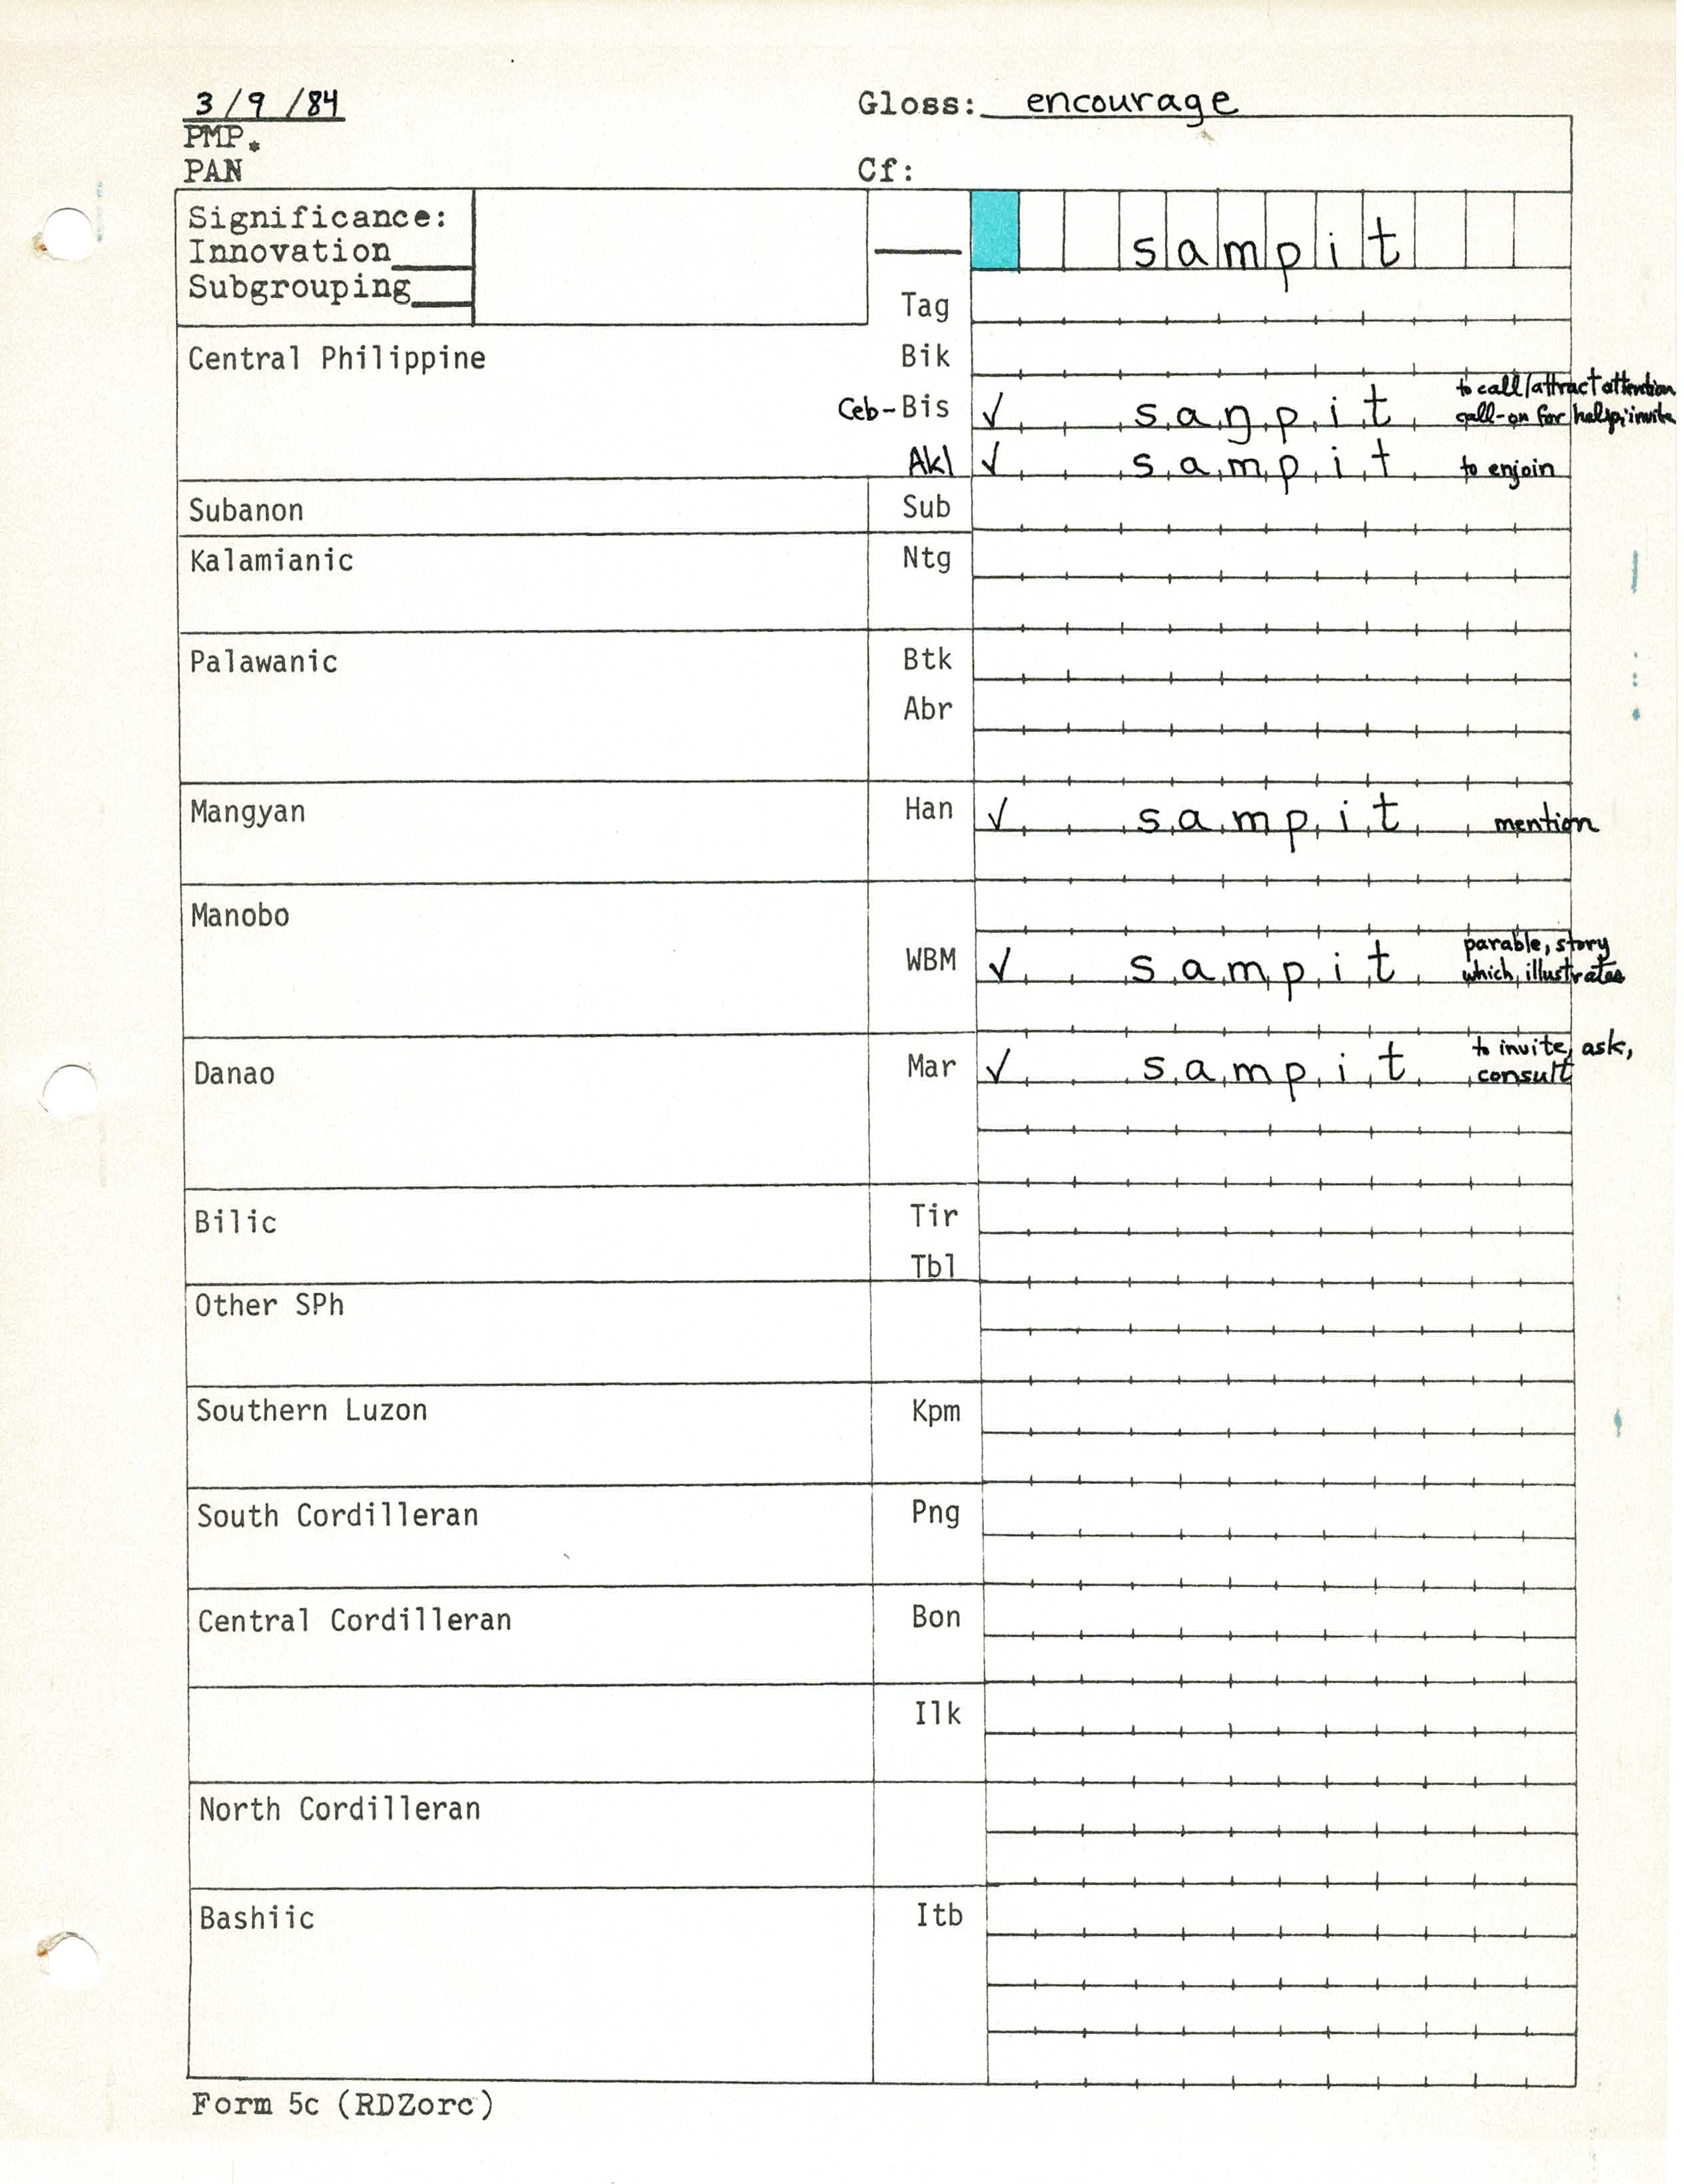 3/9/84 Gloss: encourage
PMP.
PAN Cf:
Significance:
Innovation
Subgrouping
sampit
Tag
Central Philippine Bik
Ceb-Bis ✓ saŋpit to call/attract attention
call-on for help, invite
Akl ✓ sampit to enjoin
Subanon Sub
Kalamianic Ntg
Palawanic Btk
Abr
Mangyan Han ✓ sampit mention
Manobo
WBM ✓ sampit parable, story
which illustrates
Danao Mar ✓ sampit to invite, ask,
consult
Bilic Tir
Tbl
Other SPh
Southern Luzon Kpm
South Cordilleran Png
Central Cordilleran Bon
Ilk
North Cordilleran
Bashiic Itb
Form 5c (RDZorc)